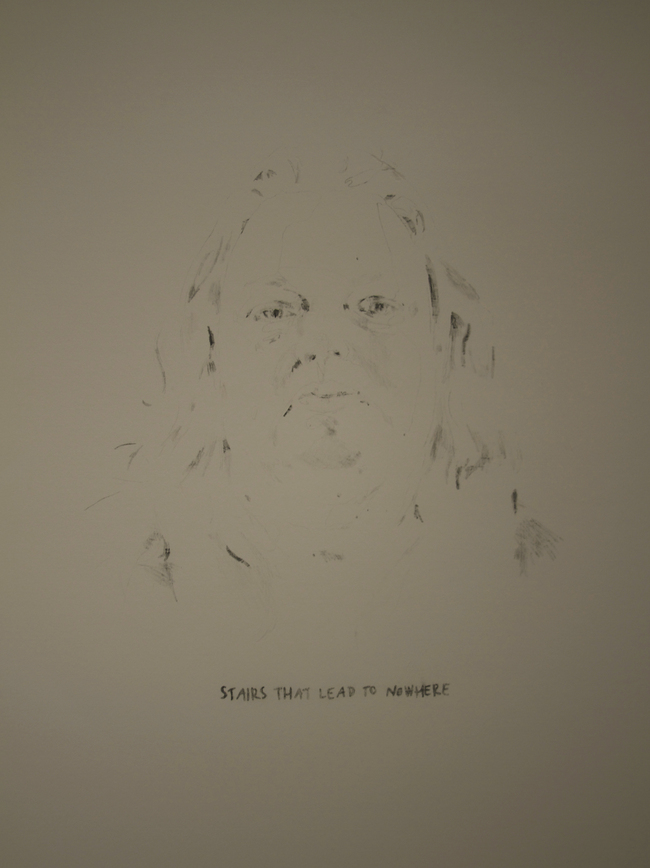 STAIRS THAT LEAD TO NOWHERE